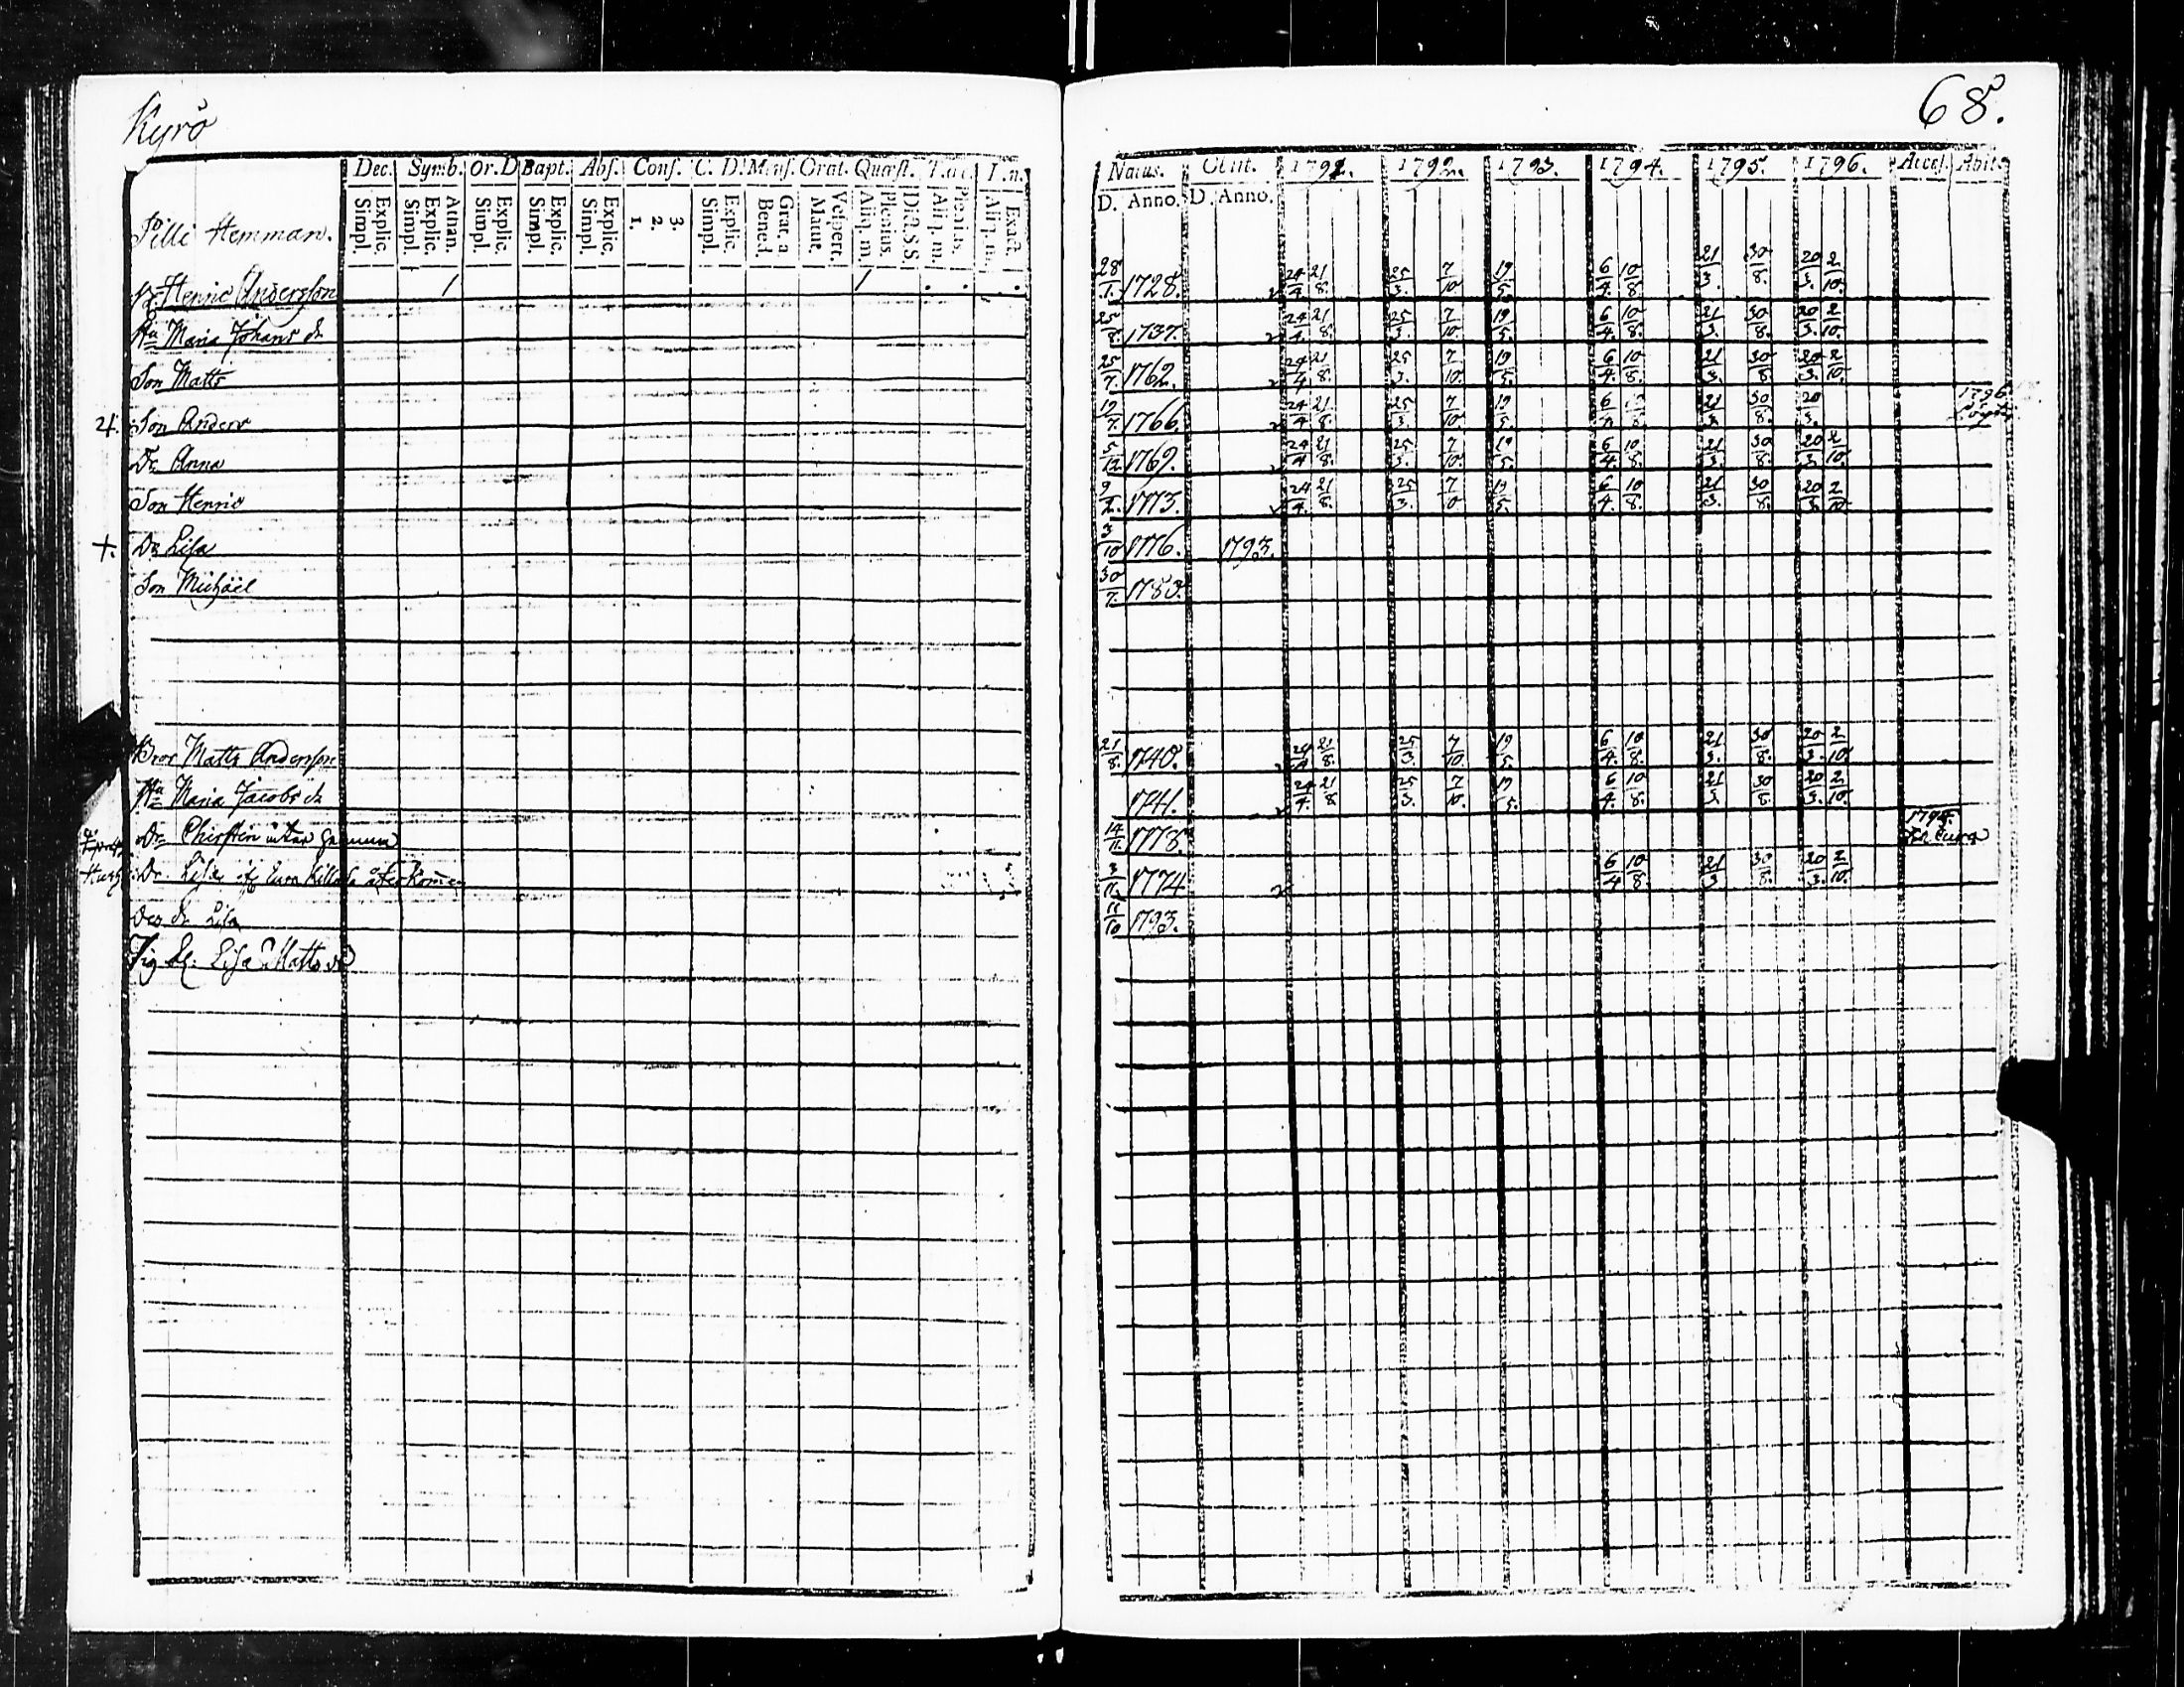 Kyrö
68.
Dec. Symb. Or. D Bapt. Abs. Conf. C. D. Mens. Orat. Quæst.
Explic. Simpl. Athan. Explic. Simpl. Explic. Simpl. Explic. Simpl. Explic. Simpl. 3. 2. 1. Explic. Simpl. Grat. a. Bened. Vespert. Matut. Dict. S.S. Plenius. Aliq. m. Plenius. Aliq. m. Exact. Aliq. m.
Natus. Obiit. 1791. 1792. 1793. 1794. 1795. 1796. Access. Abit.
D. Anno. D. Anno.
Pilli Hemman.
Henric Andersson 28/1. 1728. 24/4 21/8. 25/3. 7/10 19/5. 6/4. 10/8. 21/3. 30/8. 20/3. 2/10.
Hu Maria Johans dr 25/8. 1737. 24/4. 21/8. 25/3. 7/10. 19/5. 6/4. 10/8. 21/3. 30/8. 20/3. 2/10.
Son Matts 25/7. 1762. 24/4 21/8. 25/3. 7/10. 19/5. 6/4. 10/8. 21/3. 30/8 20/3. 2/10.
24. Son Anders 1766. 24/4 21/8. 25/3. 7/10. 19/5. 21/3. 30/8. 20/3. 1796
Dr. Anna 5/12. 1769. 24/4 21/8. 25/3. 7/10. 19/5. 6/4. 10/8. 21/3. 30/8. 20/3. 2/10.
Son Henric 9/2. 1773. 24/4. 21/8. 25/3. 7/10 19/5. 6/4. 10/8. 21/3. 30/8. 20/3. 2/10
+. Dr Lisa 3/10 1776. 1793.
Son Michäel 30/7. 1783.
Bror Matts Andersson 21/8. 1740. 24/4 21/8. 25/3. 7/10. 19/5. 6/4. 10/8. 21/3. 30/8. 20/3. 2/10
Hu Maria Jacobs dr 1741. 24/4. 21/8 25/3. 7/10. 19/5. 6/4. 10/8. 21/3. 30/8. 20/3. 2/10.
Dr. Chirstin 14/11. 1778. 1794.
Dr. Lisa återkommen 3/11 1774 6/4 10/8 21/3 30/8. 20/3. 2/10.
dr Lisa 11/10 1793.
Lisa Matts dr